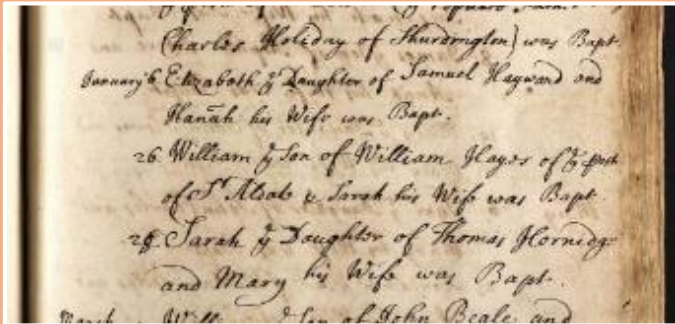 Charles Holiday of Shurdington) was Bapt.
January 6 Elizabeth ye Daughter of Samuel Hayward and
Hanah his Wife was Bapt.
26 William ye Son of William Hayes of ye
of St. his Wife was Bapt.
Sarah ye Daughter of Thomas Hornidge
and Mary his Wife was Bapt.
March Son of John Beale and